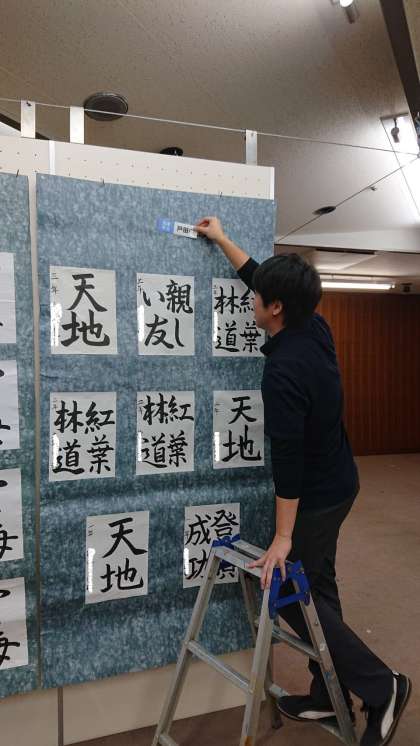 戸田
三年
天地
二年
親し
い友
紅葉
林道
紅葉
林道
紅葉
林道
天地
天地
登
成功